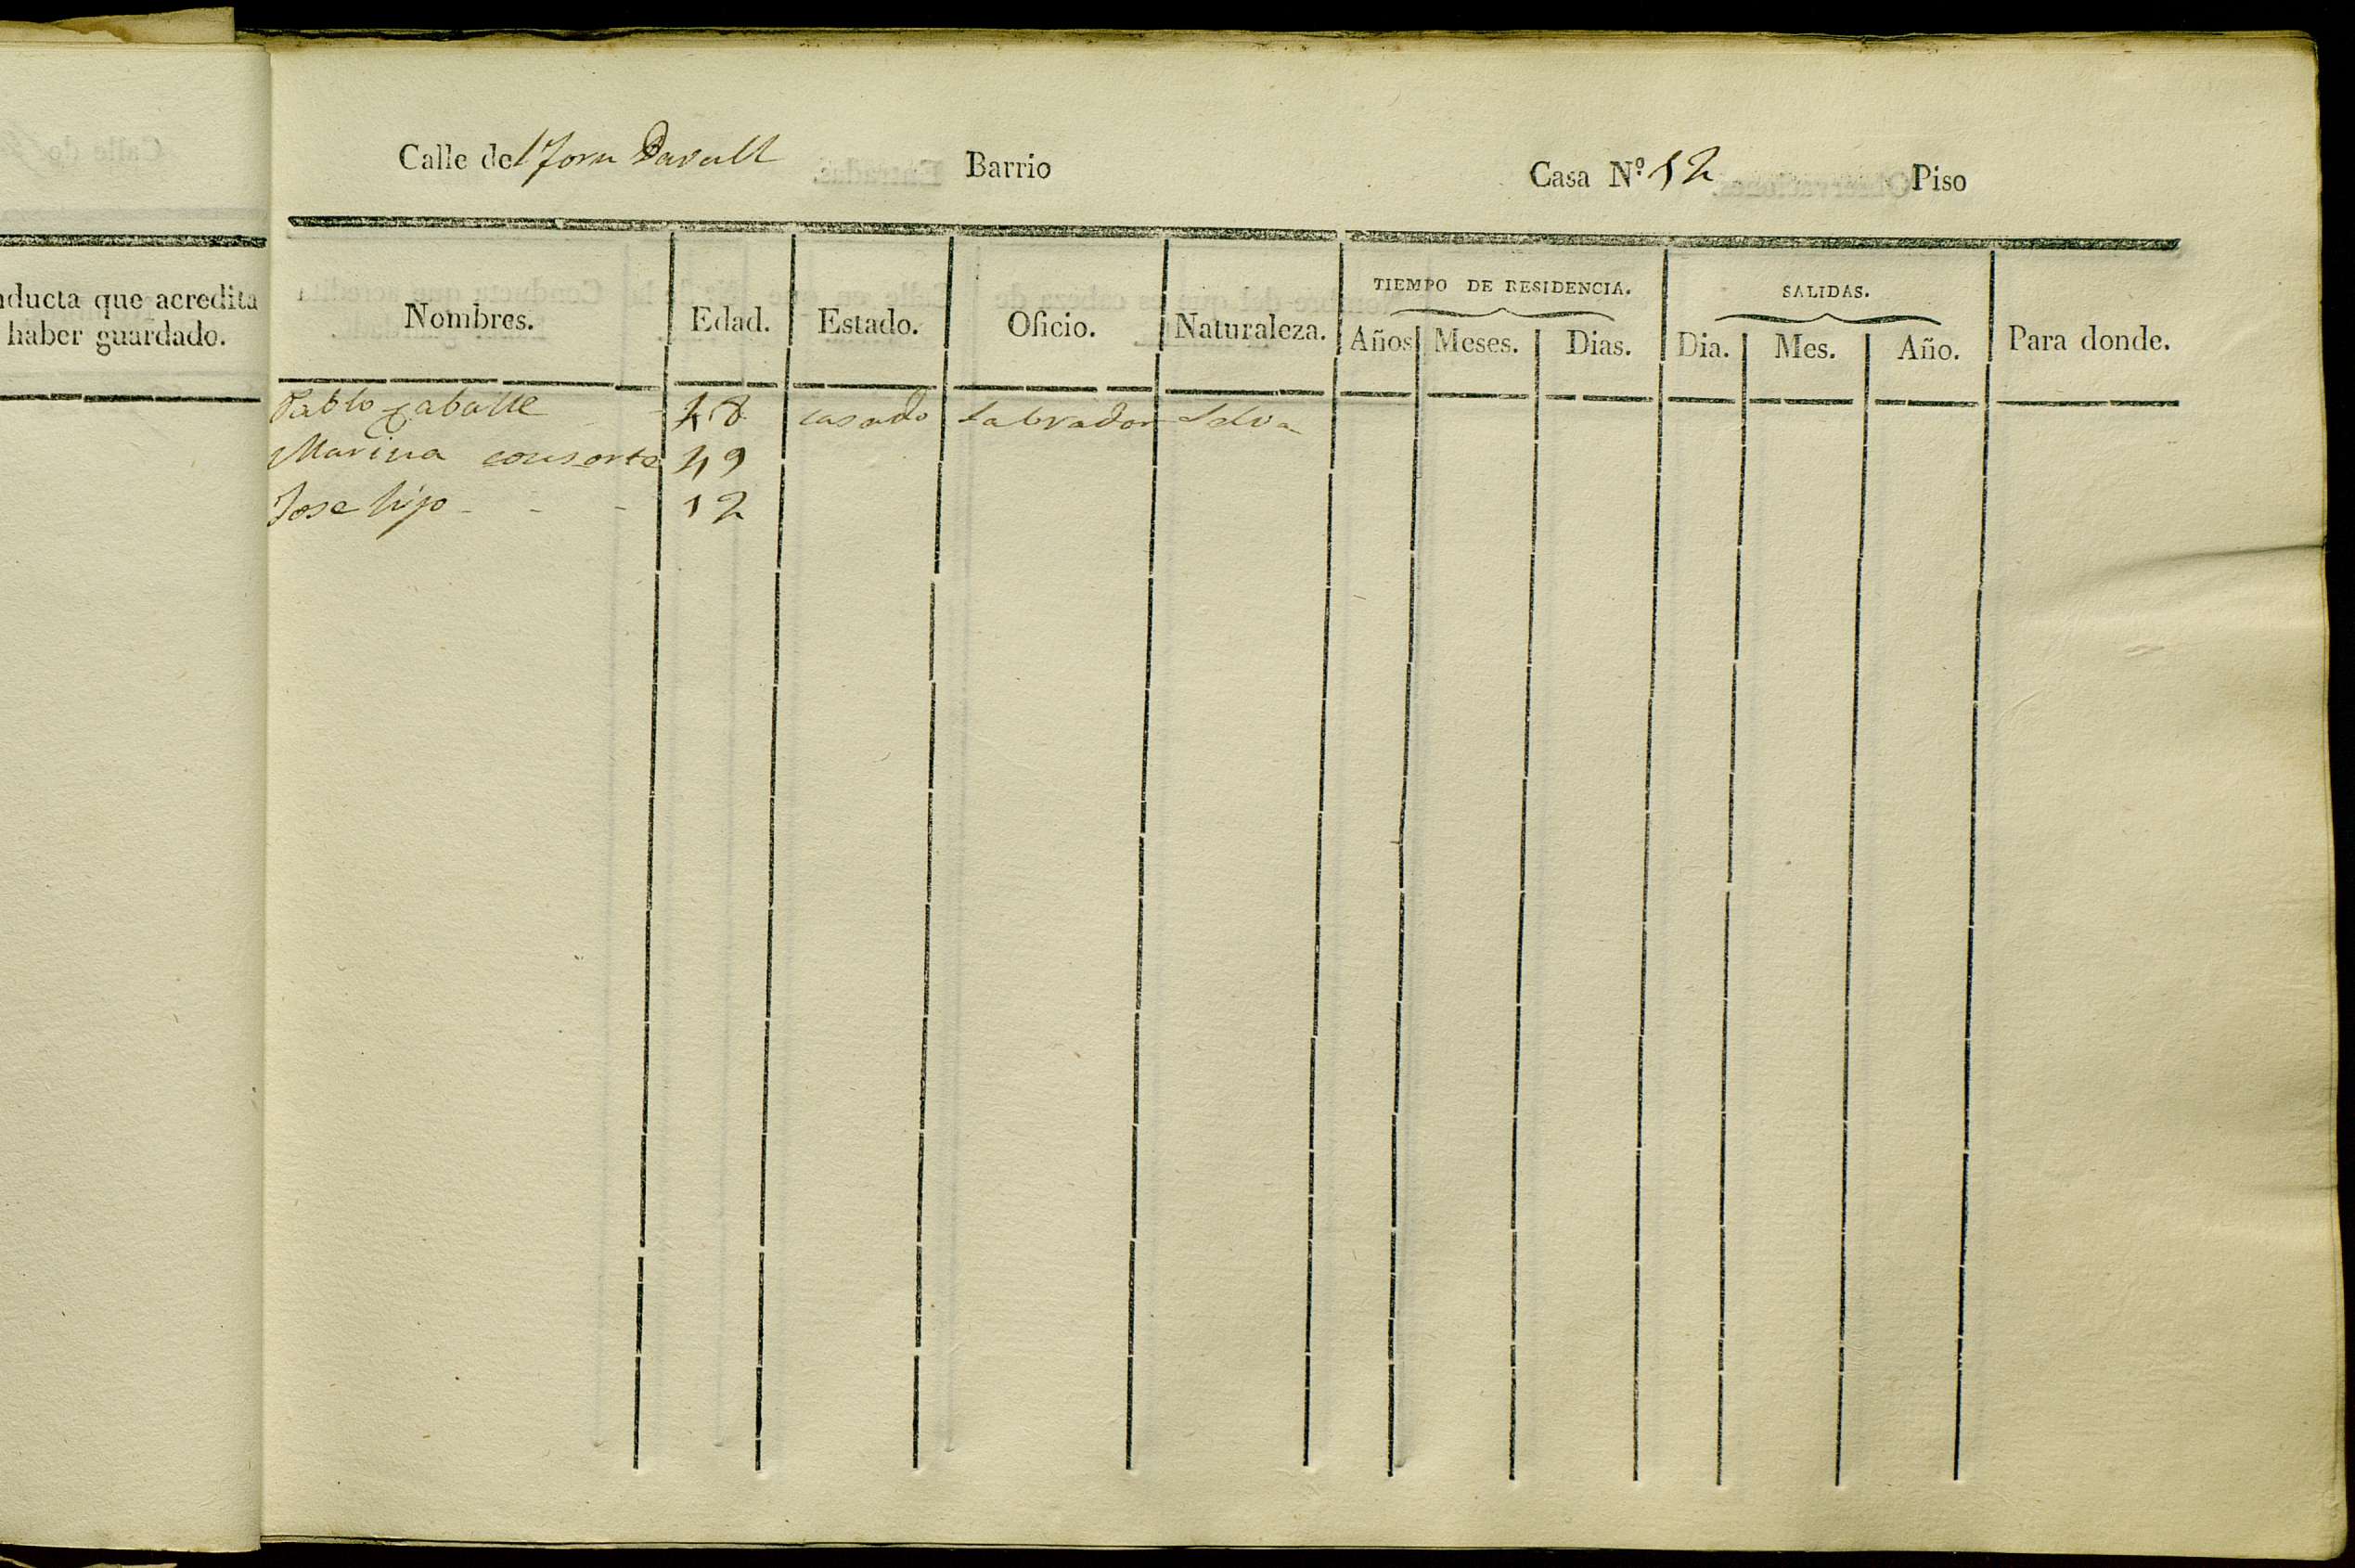 nducta que acredita
haber guardado.
Calle del Forn Davall Barrio Casa N.º 12 Piso
Nombres. Edad. Estado. Oficio. Naturaleza. TIEMPO DE RESIDENCIA. Años Meses. Dias. SALIDAS. Dia. Mes. Año. Para donde.
Pablo 48 casado Labrador Selva
Marina consorte 49
Jose hijo - - - 12